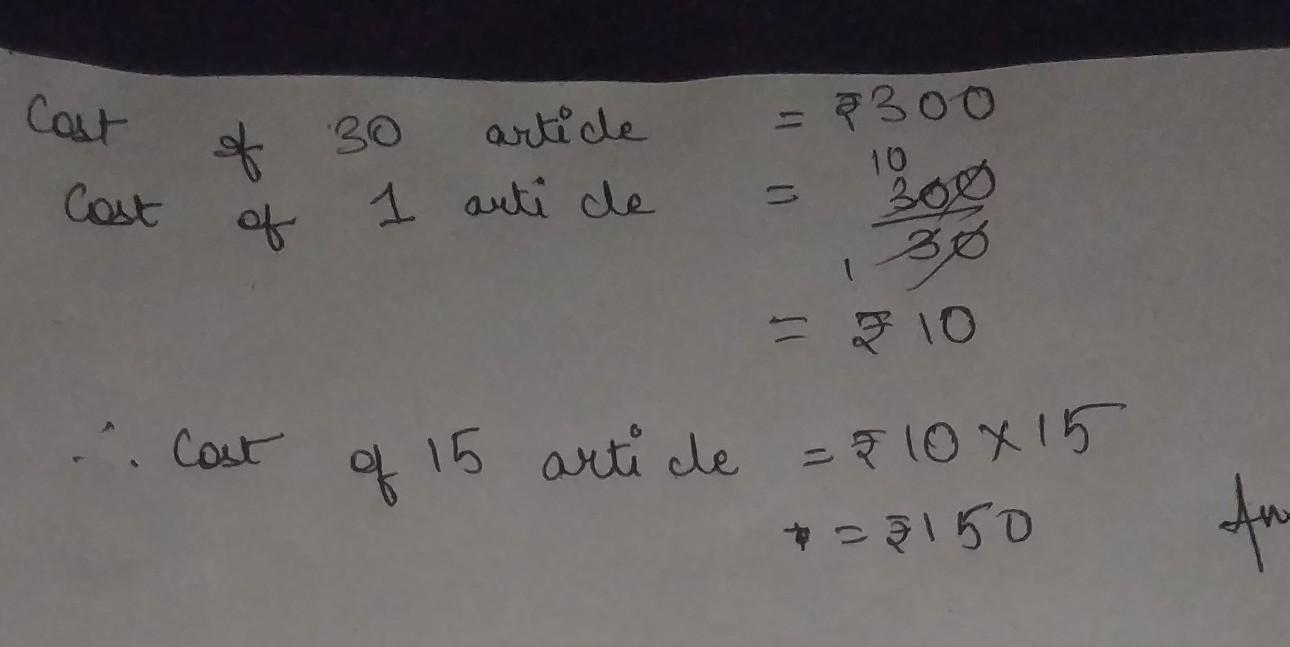 Cost of 30 article = ₹300
Cost of 1 article = 10 300/30 1
= ₹10
∴ Cost of 15 article = ₹10 × 15
= ₹150 An